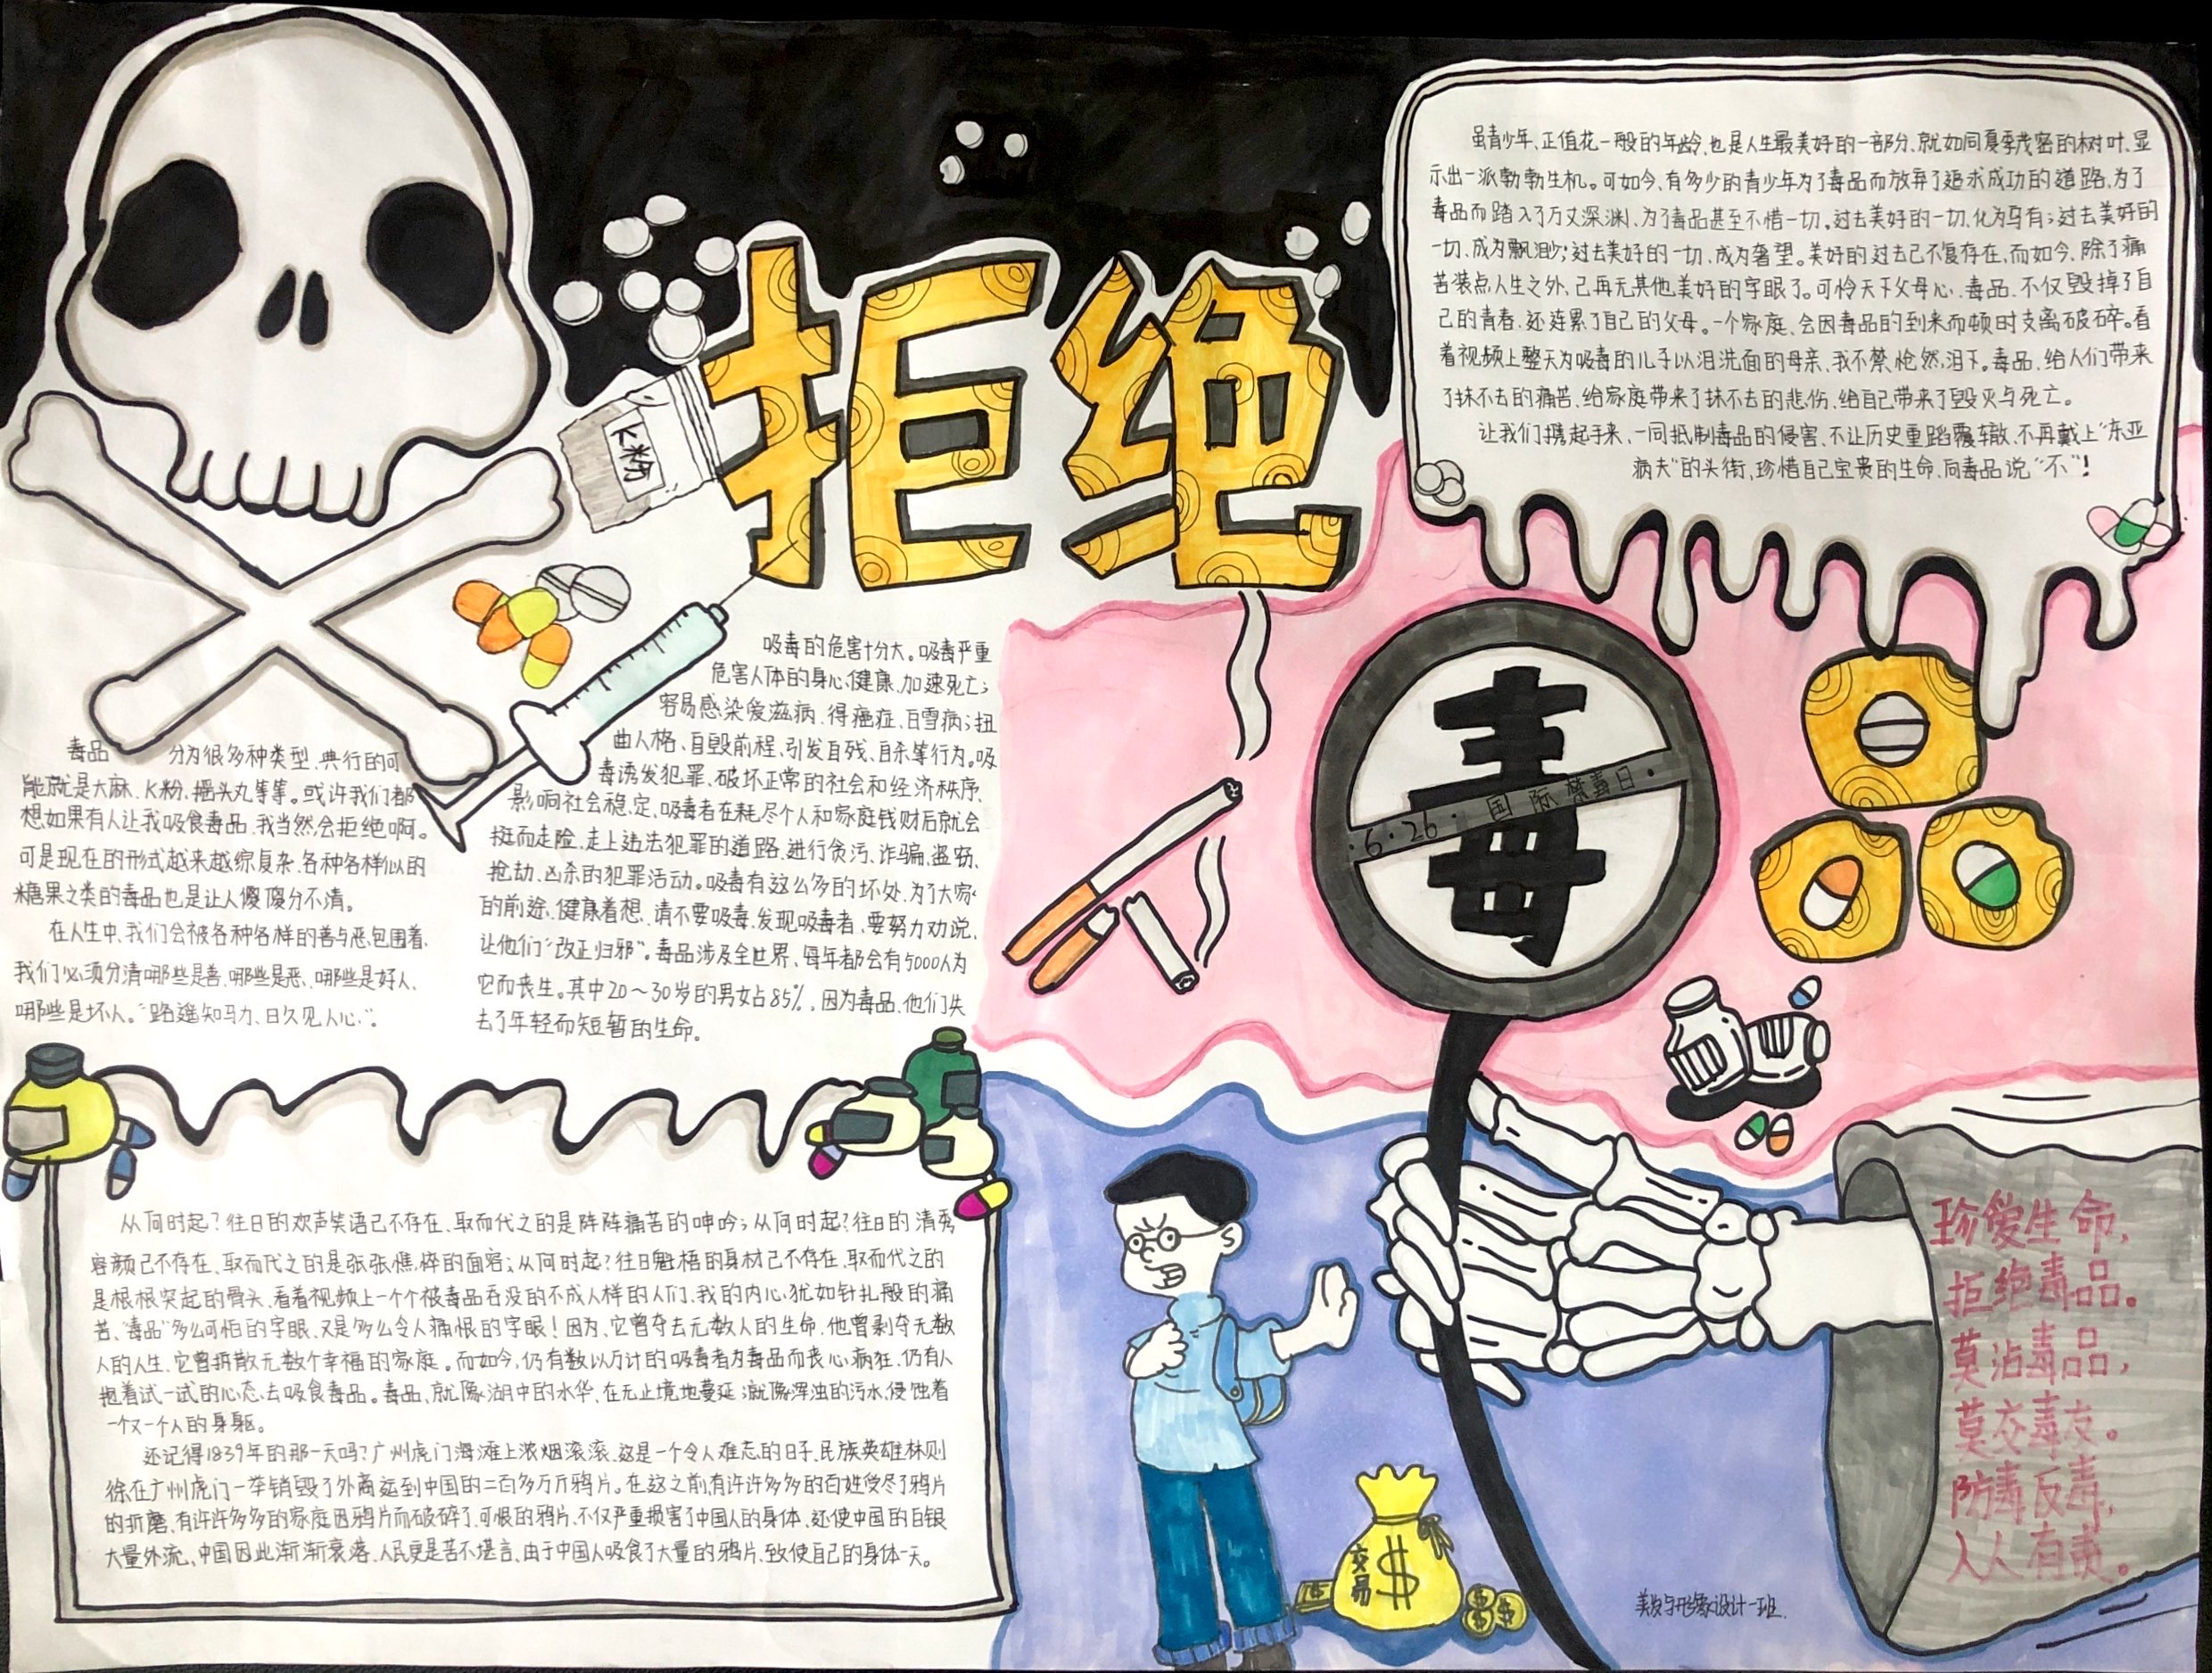 拒绝
毒品
K粉
·6·26·国际禁毒日·
虽青少年、正值花一般的年龄,也是人生最美好的一部分、就如同夏季茂密的树叶、显
示出一派勃勃生机。可如今、有多少的青少年为了毒品而放弃了追求成功的道路、为了
毒品而踏入了万丈深渊、为了毒品甚至不惜一切。过去美好的一切、化为乌有;过去美好的
一切、成为飘渺;过去美好的一切、成为奢望。美好的过去已不复存在、而如今、除了痛
苦装点人生之外、已再无其他美好的字眼了。可怜天下父母心、毒品、不仅毁掉了自
己的青春、还连累了自己的父母。一个家庭、会因毒品的到来而顿时支离破碎。看
着视频上整天为吸毒的儿子以泪洗面的母亲、我不禁怆然泪下。毒品、给人们带来
了抹不去的痛苦、给家庭带来了抹不去的悲伤、给自己带来了毁灭与死亡。
让我们携起手来、一同抵制毒品的侵害、不让历史重蹈覆辙、不再戴上“东亚
病夫”的头衔、珍惜自己宝贵的生命、向毒品说“不”!
吸毒的危害十分大。吸毒严重
危害人体的身心健康、加速死亡;
容易感染爱滋病、得癌症、白雪病;扭
曲人格、自毁前程、引发自残、自杀等行为。吸
毒诱发犯罪、破坏正常的社会和经济秩序、
影响社会稳定、吸毒者在耗尽个人和家庭钱财后就会
挺而走险、走上违法犯罪的道路、进行贪污、诈骗、盗窃、
抢劫、凶杀的犯罪活动。吸毒有这么多的坏处、为了大家
的前途、健康着想、请不要吸毒、发现吸毒者、要努力劝说、
让他们“改正归邪”。毒品涉及全世界、每年都会有5000人为
它而丧生。其中20~30岁的男女占85%、因为毒品、他们失
去了年轻而短暂的生命。
毒品 分为很多种类型、典行的可
能就是大麻、K粉、摇头丸等等。或许我们都
想如果有人让我吸食毒品、我当然会拒绝啊。
可是现在的形式越来越综复杂、各种各样似的
糖果之类的毒品也是让人傻傻分不清。
在人生中、我们会被各种各样的善与恶包围着、
我们必须分清哪些是善、哪些是恶、哪些是好人、
哪些是坏人。“路遥知马力、日久见人心”。
从何时起?往日的欢声笑语已不存在、取而代之的是阵阵痛苦的呻吟;从何时起?往日的清秀
容颜已不存在、取而代之的是张张憔悴的面容;从何时起?往日魁梧的身材已不存在、取而代之的
是根根突起的骨头、看着视频上一个个被毒品吞没的不成人样的人们、我的内心、犹如针扎般的痛
苦、“毒品”多么可怕的字眼、又是多么令人痛恨的字眼!因为、它曾夺去无数人的生命、他曾剥夺无数
人的人生、它曾拆散无数个幸福的家庭。而如今、仍有数以万计的吸毒者为毒品而丧心病狂、仍有人
抱着试一试的心态、去吸食毒品。毒品、就像湖中的水华、在无止境地蔓延;就像浑浊的污水、侵蚀着
一个又一个人的身躯。
还记得1839年的那一天吗?广州虎门海滩上浓烟滚滚、这是一个令人难忘的日子、民族英雄林则
徐在广州虎门一举销毁了外商运到中国的二百多万斤鸦片。在这之前、有许许多多的百姓受尽了鸦片
的折磨、有许许多多的家庭因鸦片而破碎了、可恨的鸦片、不仅严重损害了中国人的身体、还使中国的白银
大量外流、中国因此渐渐衰落、人民更是苦不堪言、由于中国人吸食了大量的鸦片、致使自己的身体一天。
珍爱生命,
拒绝毒品。
莫沾毒品,
莫交毒友。
防毒反毒,
人人有责。
交易
$
美发与形象设计一班